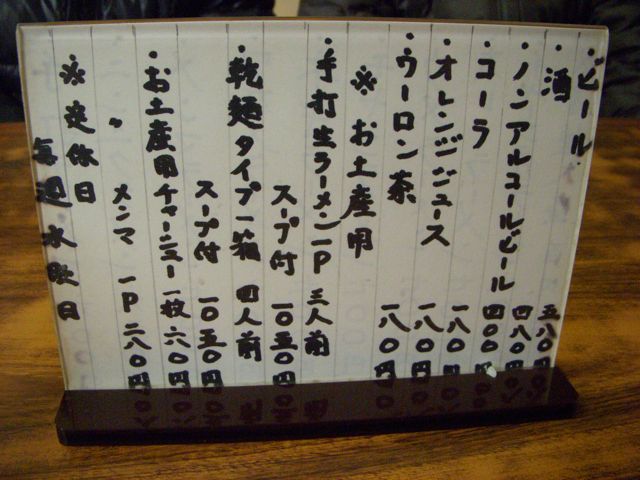 ・ビール 五八〇円
・酒 四八〇円
・ノンアルコールビール 四〇〇円
・コーラ 一八〇円
・オレンジジュース 一八〇円
・ウーロン茶 一八〇円
※お土産用
・手打生ラーメン一P 三人前
スープ付 一〇五〇円
・乾麺タイプ一箱 四人前
スープ付 一〇五〇円
・お土産用チャーシュー一枚 六〇円
〃 メンマ 一P 二八〇円
※定休日
毎週水曜日